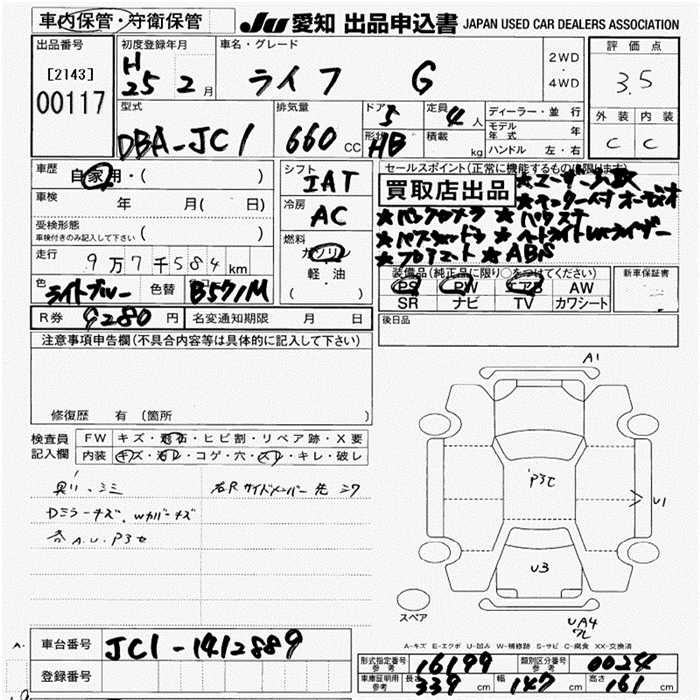 車内保管・守衛保管
JU 愛知 出品申込書 JAPAN USED CAR DEALERS ASSOCIATION
出品番号
[2143]
00117
初度登録年月
H
25 2月
車名・グレード
ライフ G
2WD
・
4WD
評価点
3.5
外装 内装
C C
型式
DBA-JC1
排気量
660 CC
ドア
5
定員
4人
形状
HB
積載
kg
ディーラー・並行
モデル年式 年
ハンドル 左・右
車歴
自家用・( )
車検
年 月( 日)
受検形態
車検付きのみ記入して下さい ( )
走行
9万7千584km
色
ライトブルー
色替
B571M
シフト
IAT
冷房
AC
燃料
ガソリン
軽・油
( )
セールスポイント(正常に機能するものに限ります)
買取店出品
★ユーザー買取
★モニター付オーディオ
★バックカメラ ★
★ ★
★ ★ABS
装備品(純正品に限り○をつけてください)
PS PW エアB AW
SR ナビ TV カワシート
新車保証書
後日品
R券 9280円
名変通知期限 月 日
注意事項申告欄(不具合内容等は具体的に記入して下さい)
修復歴 有 (箇所 )
検査員
記入欄
FW キズ・飛石・ヒビ割・リペア跡・X要
内装 キズ・汚レ・コゲ・穴・スレ・キレ・破レ
右Rサイドメンバー先
Dミラーキズ、Wカバーキズ
各A.U.P3セ
A1
P3セ
U1
U3
UA4
スペア
A-キズ E-エクボ U-凹み W-補修跡 S-サビ C-腐食 XX-交換済
車台番号 JC1-1412889
登録番号
形式指定番号
参考
16199
類別区分番号
参考
0024
車庫証明用
参考
長さ 339cm 幅 147cm 高さ 161cm